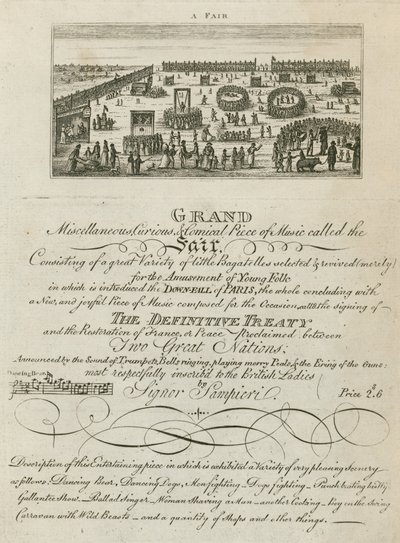 A FAIR
GRAND
Miscellaneous, Curious, & Comical Piece of Music called the
Fair,
Consisting of a great Variety of little Bagatelles selected & revived (merely)
for the Amusement of Young Folk
in which is introduced the DOWN-FALL of PARIS, the whole concluding with
a New, and joyful Piece of Music composed for the Occasion, call'd the signing of
THE DEFINITIVE TREATY
and the Restoration of France, or Peace Proclaimed between
Two Great Nations;
Announced by the Sound of Trumpets, Bells ringing, playing merry Peals, & the Firing of the Guns:
most respectfully inscrib'd to the British Ladies
Dancing Bear
by
Signor Sampieri.
Price 2s. 6
Description of this Entertaining piece in which is exhibited a Variety of very pleasing Scenery
as follows: Dancing Bear, Dancing Dogs, Men fighting — Dogs fighting — Punch beating
Gallantee Show — Ballad Singer — Woman Shaving a Man — another Cooking — Boy on the Swing
Carravan with Wild Beasts — and a quantity of Shops and other things.